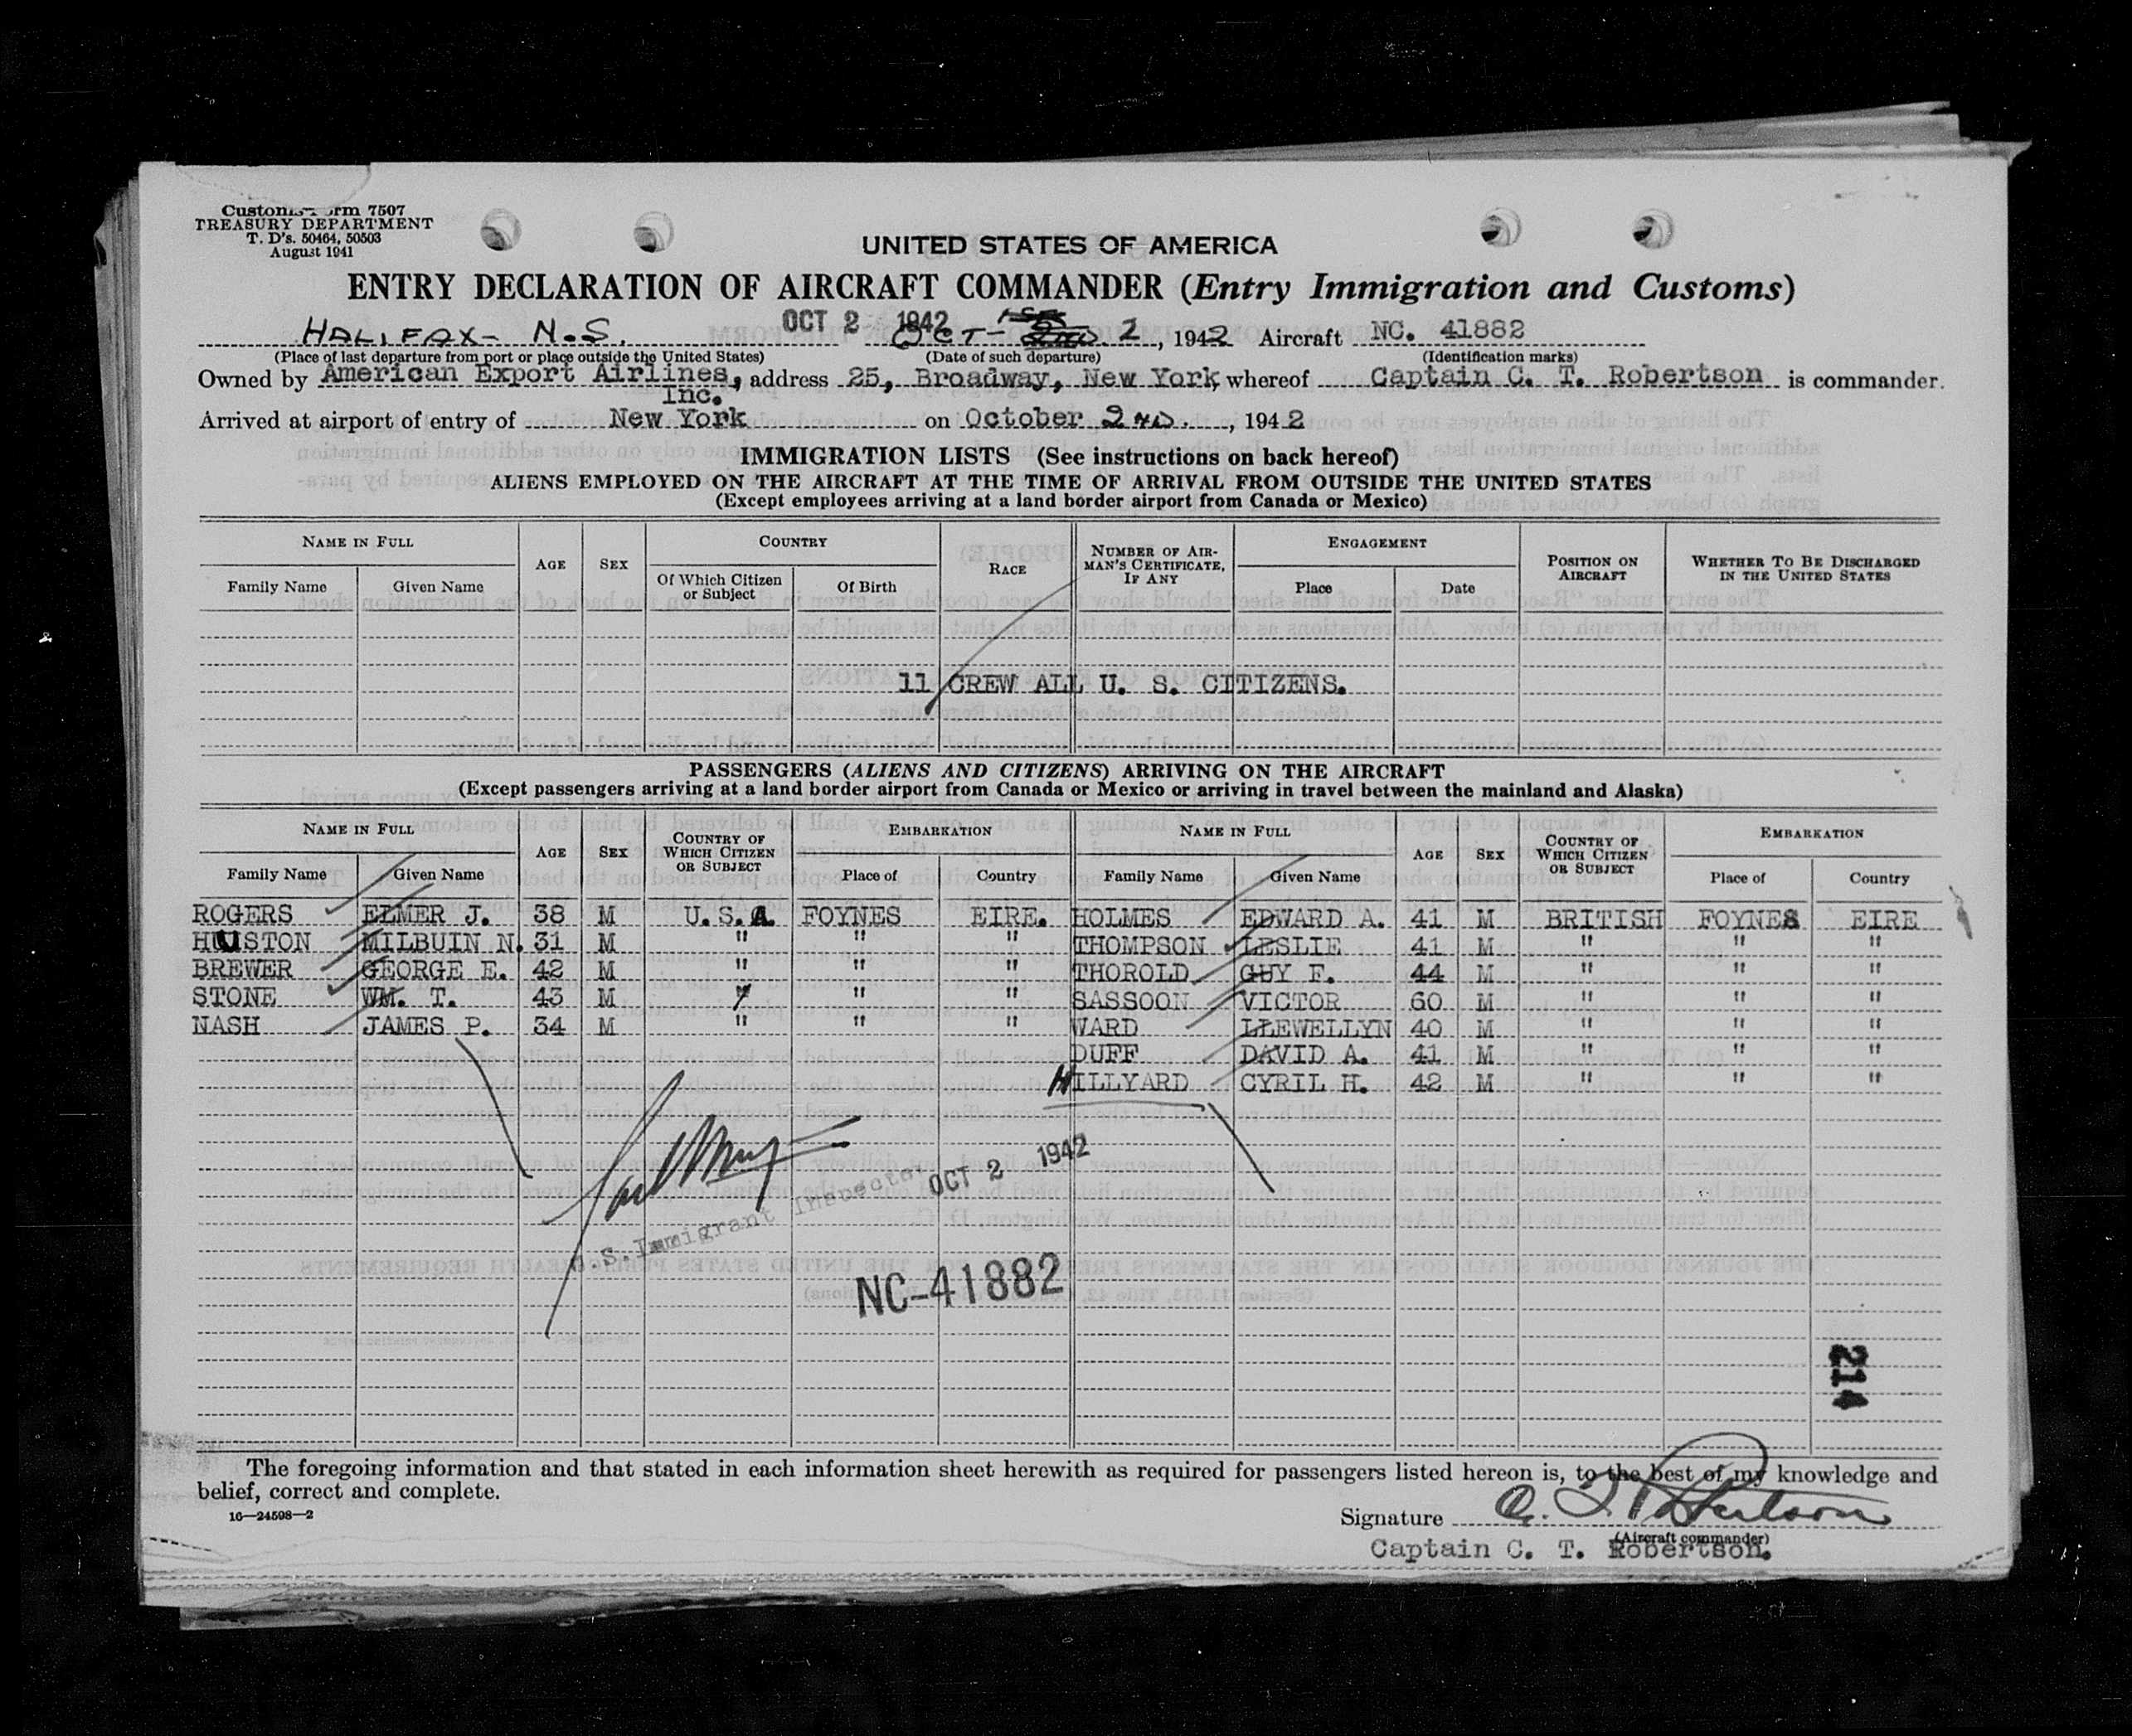 Customs Form 7507
TREASURY DEPARTMENT
T. D's. 50464, 50503
August 1941
UNITED STATES OF AMERICA
ENTRY DECLARATION OF AIRCRAFT COMMANDER (Entry Immigration and Customs)
HALIFAX- N.S. OCT 2 1942 OCT- 2, 1942 Aircraft NC. 41882
(Place of last departure from port or place outside the United States) (Date of such departure) (Identification marks)
Owned by American Export Airlines, Inc. address 25, Broadway, New York, whereof Captain C. T. Robertson is commander.
Arrived at airport of entry of New York on October 2ND., 1942
IMMIGRATION LISTS (See instructions on back hereof)
ALIENS EMPLOYED ON THE AIRCRAFT AT THE TIME OF ARRIVAL FROM OUTSIDE THE UNITED STATES
(Except employees arriving at a land border airport from Canada or Mexico)
NAME IN FULL AGE SEX COUNTRY RACE NUMBER OF AIRMAN'S CERTIFICATE, IF ANY ENGAGEMENT POSITION ON AIRCRAFT WHETHER TO BE DISCHARGED IN THE UNITED STATES
Family Name Given Name Of Which Citizen or Subject Of Birth Place Date
11 CREW ALL U. S. CITIZENS.
PASSENGERS (ALIENS AND CITIZENS) ARRIVING ON THE AIRCRAFT
(Except passengers arriving at a land border airport from Canada or Mexico or arriving in travel between the mainland and Alaska)
NAME IN FULL AGE SEX COUNTRY OF WHICH CITIZEN OR SUBJECT EMBARKATION NAME IN FULL AGE SEX COUNTRY OF WHICH CITIZEN OR SUBJECT EMBARKATION
Family Name Given Name Place of Country Family Name Given Name Place of Country
ROGERS ELMER J. 38 M U.S.A. FOYNES EIRE. HOLMES EDWARD A. 41 M BRITISH FOYNES EIRE
HUSTON MILBUIN N. 31 M " " " THOMPSON LESLIE 41 M " " "
BREWER GEORGE E. 42 M " " " THOROLD GUY F. 44 M " " "
STONE WM. T. 43 M " " " SASSOON VICTOR 60 M " " "
NASH JAMES P. 34 M " " " WARD LLEWELLYN 40 M " " "
DUFF DAVID A. 41 M " " "
HILLYARD CYRIL H. 42 M " " "
U.S. Immigrant Inspector OCT 2 1942
NC-41882
214
The foregoing information and that stated in each information sheet herewith as required for passengers listed hereon is, to the best of my knowledge and
belief, correct and complete.
16—24598—2
Signature C. T. Robertson
(Aircraft commander)
Captain C. T. Robertson.